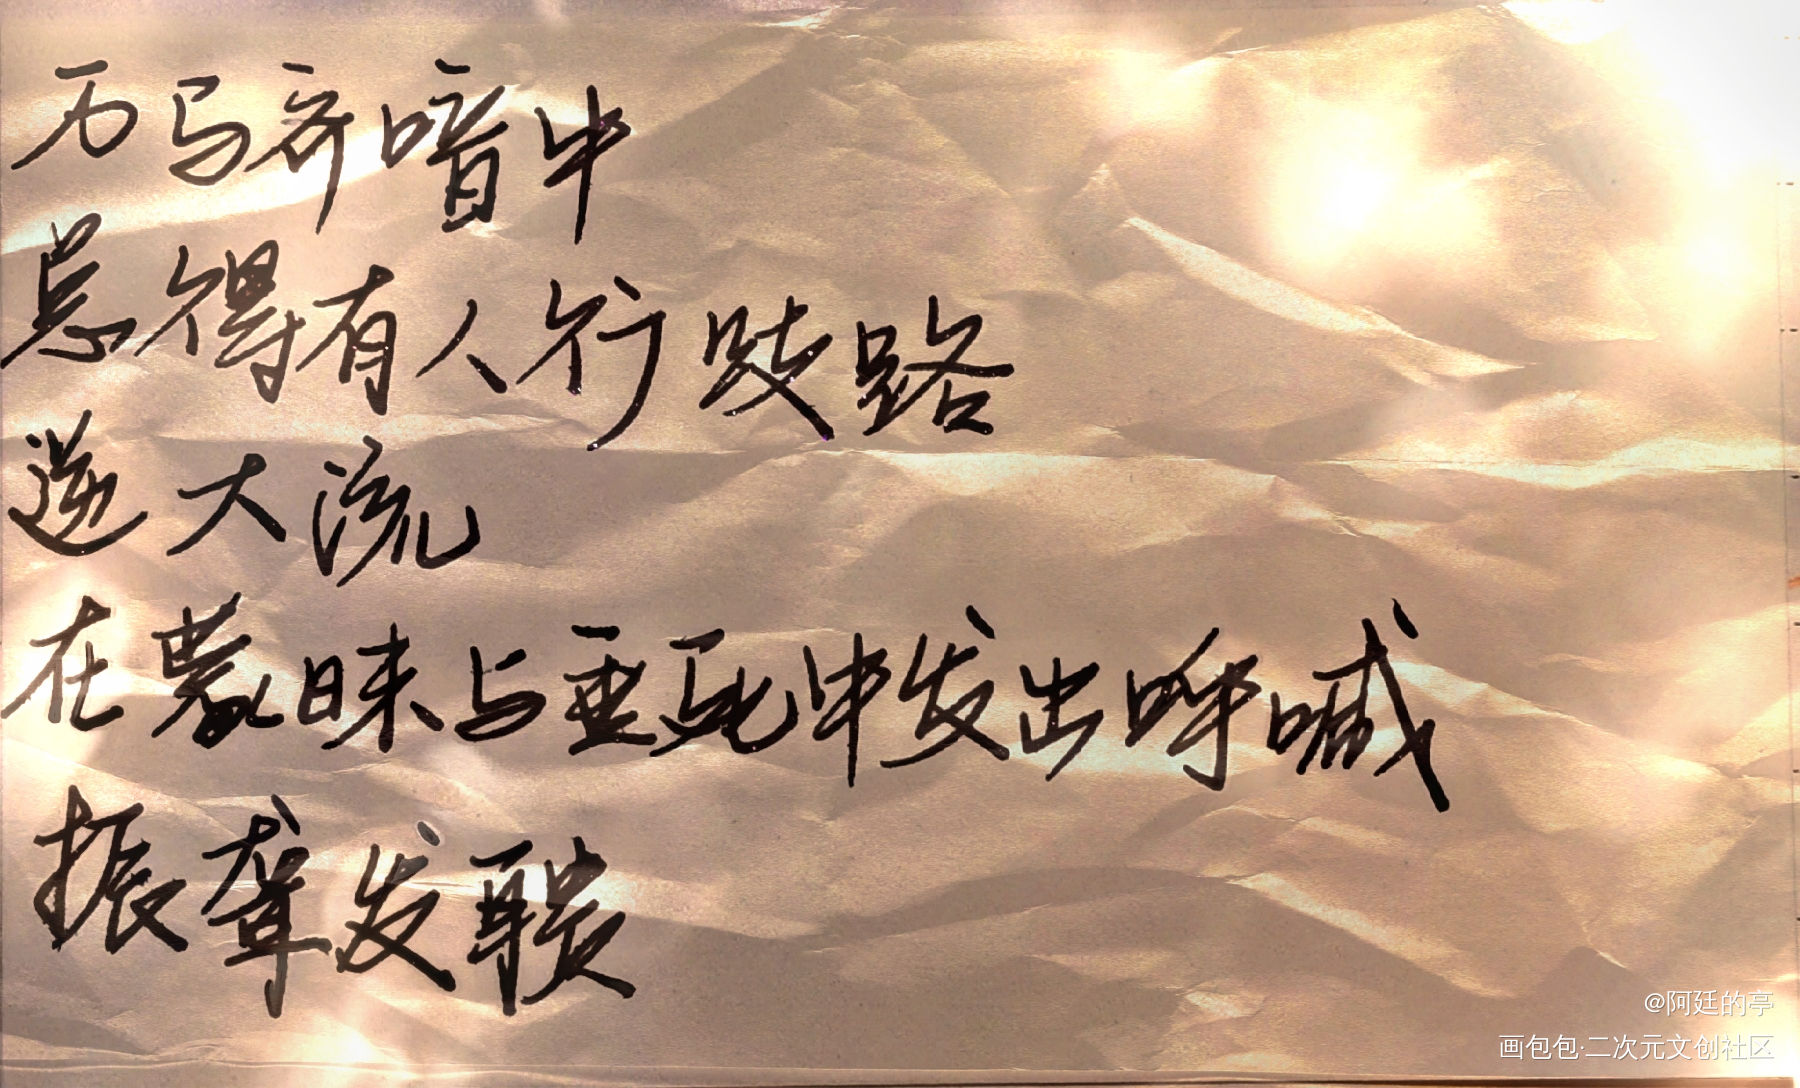 万马齐喑中
总得有人行歧路
逆大流
在蒙昧与垂死中发出呼喊
振聋发聩
@阿廷的亭
画包包·二次元文创社区